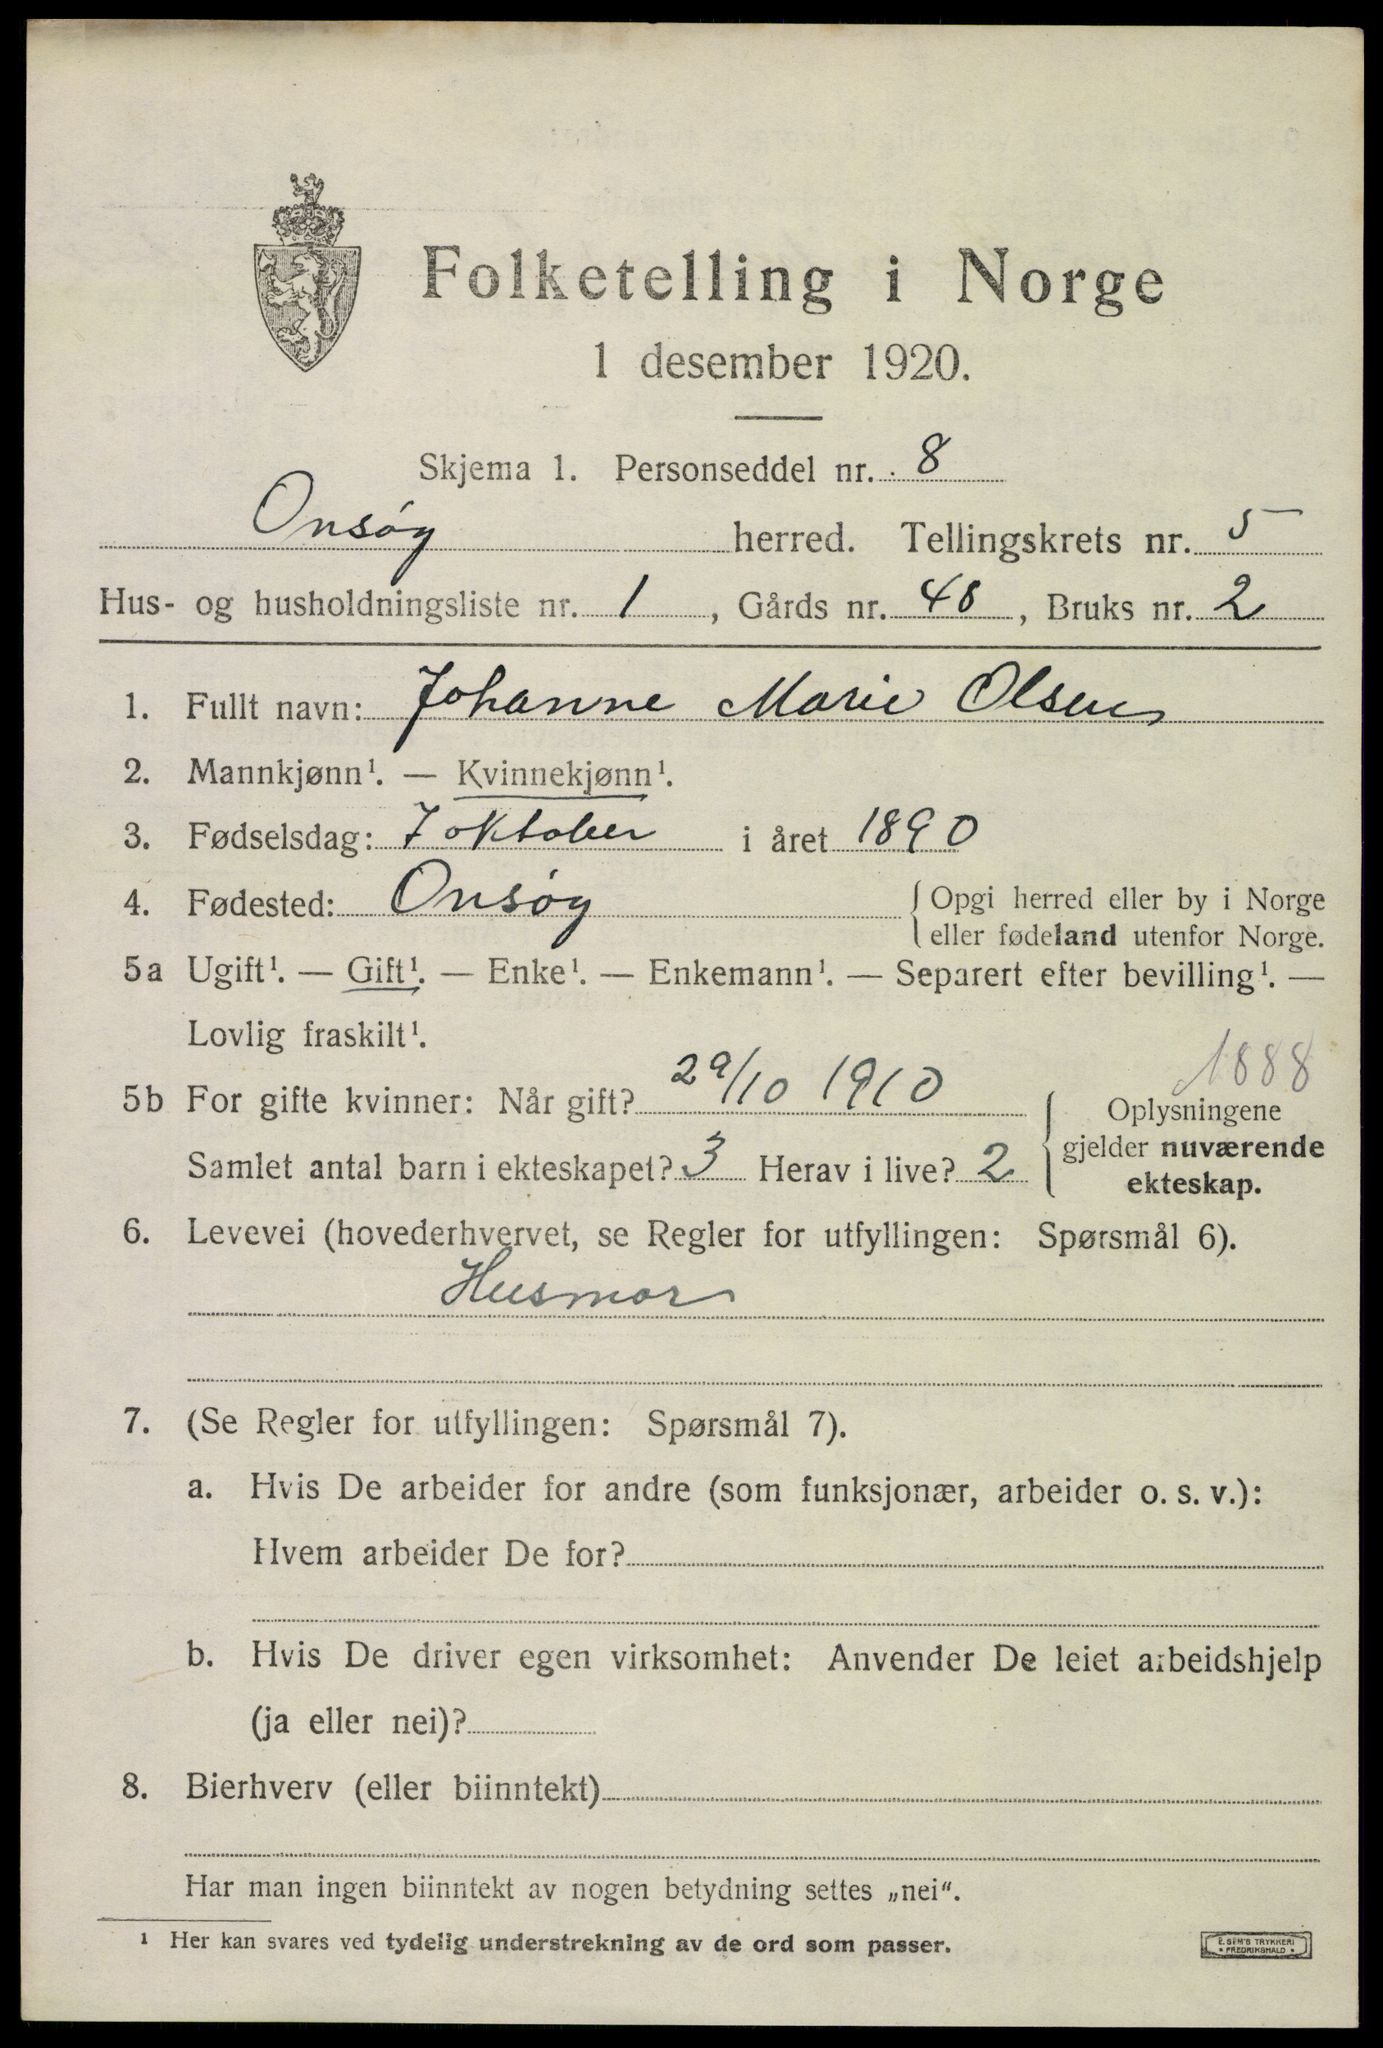 Folketelling i Norge
1 desember 1920.
Skjema 1. Personseddel nr. 8
Onsøy herred. Tellingskrets nr. 5
Hus- og husholdningsliste nr. 1, Gårds nr. 48, Bruks nr. 2
1. Fullt navn: Johanne Marie Olsen
2. Mannkjønn¹. — Kvinnekjønn¹.
3. Fødselsdag: 7 oktober i året 1890
4. Fødested: Onsøy { Opgi herred eller by i Norge
eller fødeland utenfor Norge.
5a Ugift¹. — Gift¹. — Enke¹. — Enkemann¹. — Separert efter bevilling¹. —
Lovlig fraskilt¹.
1888
5b For gifte kvinner: Når gift? 29/10 1910 { Oplysningene
gjelder nuværende
Samlet antal barn i ekteskapet? 3 Herav i live? 2 ekteskap.
6. Levevei (hovederhvervet, se Regler for utfyllingen: Spørsmål 6).
Husmor
7. (Se Regler for utfyllingen: Spørsmål 7).
a. Hvis De arbeider for andre (som funksjonær, arbeider o. s. v.):
Hvem arbeider De for?
b. Hvis De driver egen virksomhet: Anvender De leiet arbeidshjelp
(ja eller nei)?
8. Bierhverv (eller biinntekt)
Har man ingen biinntekt av nogen betydning settes „nei“.
¹ Her kan svares ved tydelig understrekning av de ord som passer.
E. SEM'S TRYKKERI
• FREDRIKSHALD •